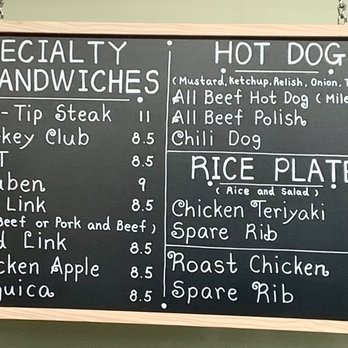 ECIALTY
ANDWICHES
-Tip Steak 11
key Club 8.5
T 8.5
uben 9
Link 8.5
Beef or Pork and Beef)
d Link 8.5
cken Apple 8.5
guica 8.5
HOT DOG
(Mustard, Ketchup, Relish, Onion, T
All Beef Hot Dog (Mile
All Beef Polish
Chili Dog
RICE PLATE
(Rice and Salad)
Chicken Teriyaki
Spare Rib
Roast Chicken
Spare Rib